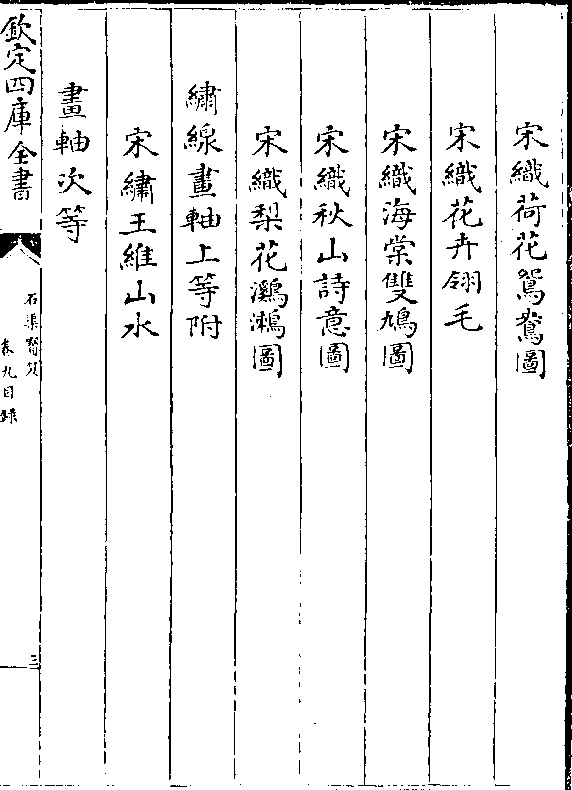 宋織荷花鴛鴦圖
宋織花卉翎毛
宋織海棠雙鳩圖
宋織秋山詩意圖
宋織梨花鸂鶒圖
繡線畫軸上等附
宋繡王維山水
畫軸次等
欽定四庫全書
石渠寶笈
卷九目錄
三